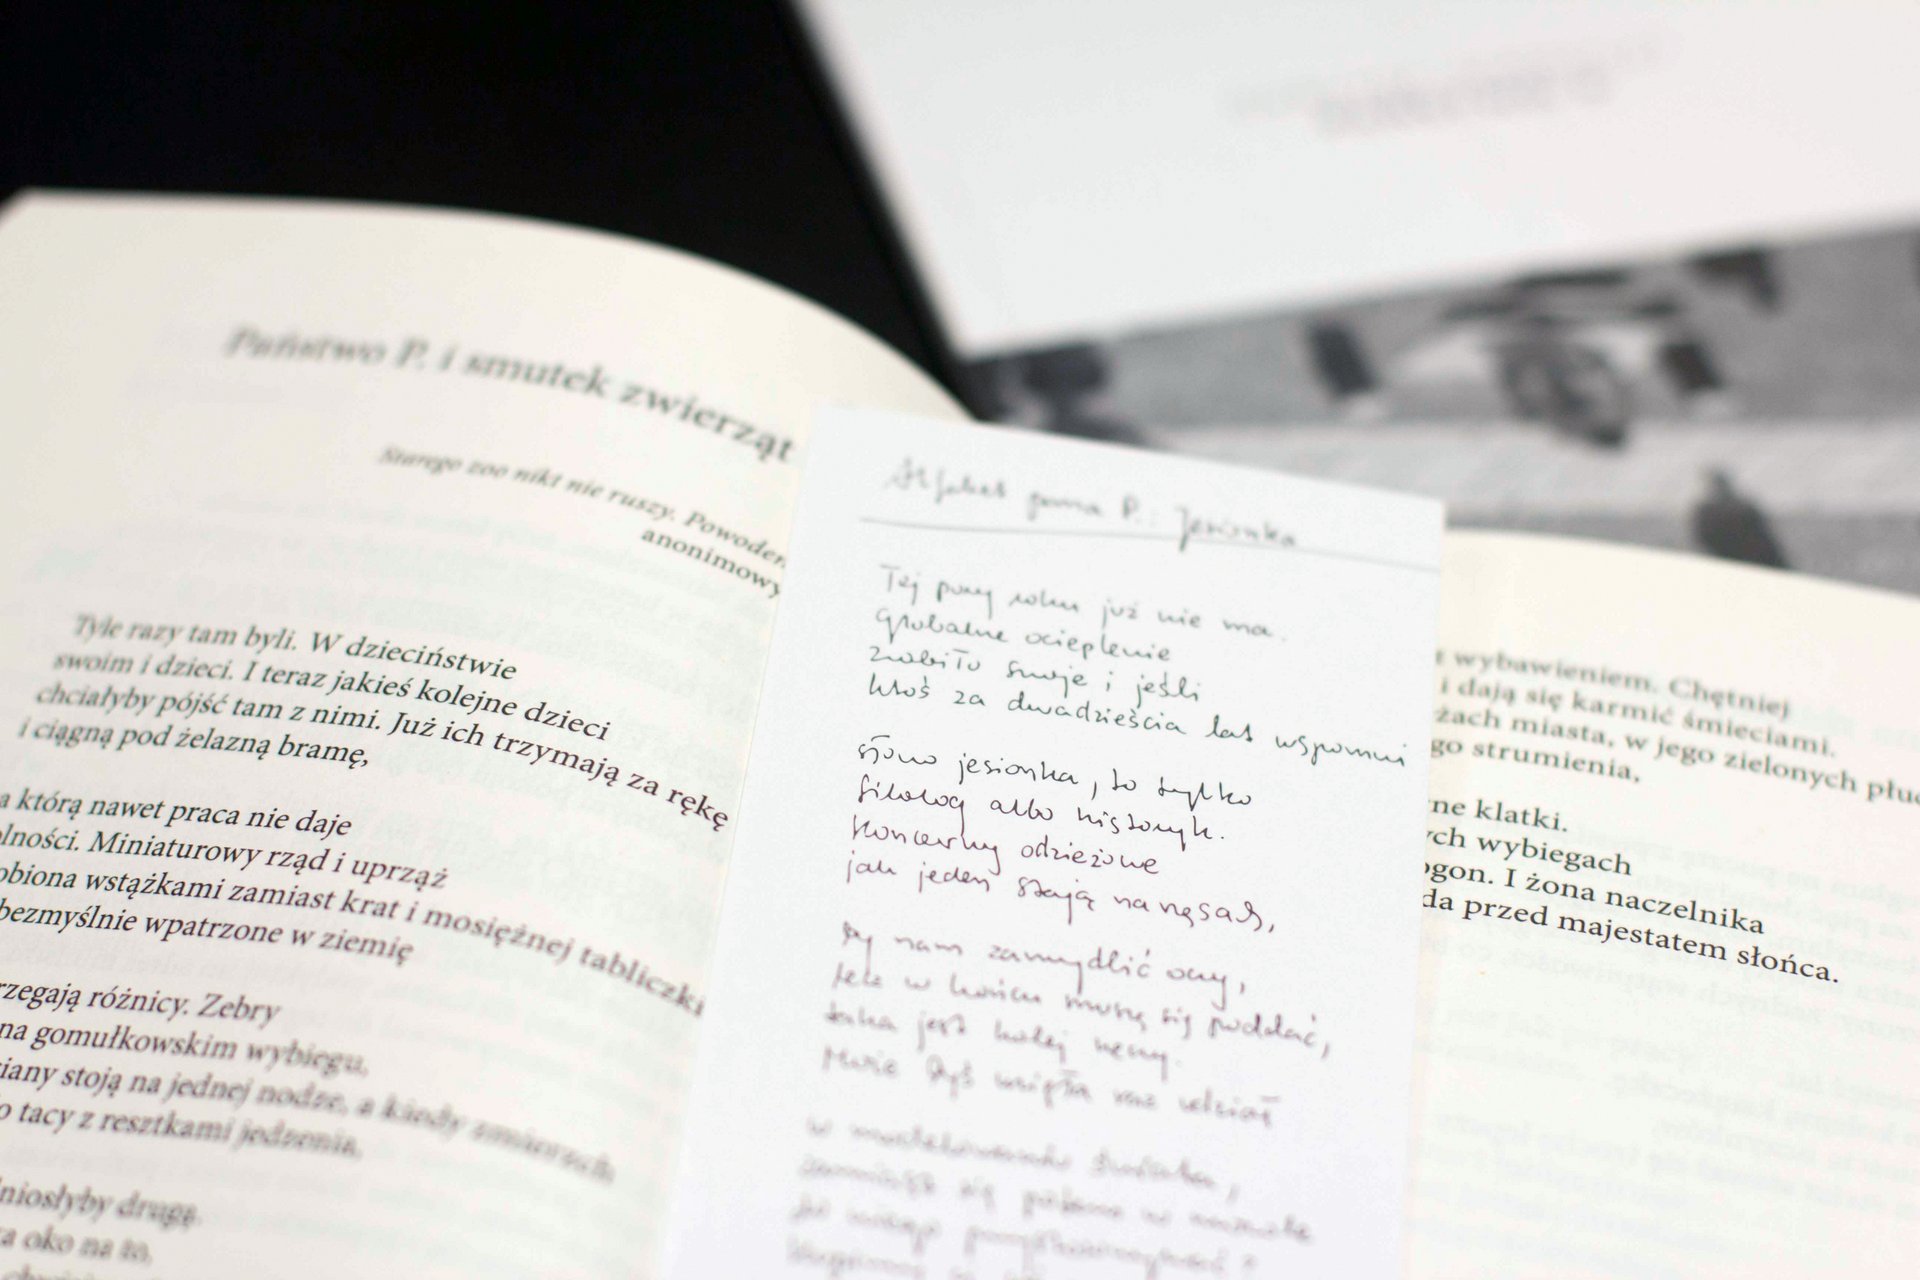 Państwo P. i smutek zwierząt
Starego zoo nikt nie ruszy. Powoder
anonimowy
Tyle razy tam byli. W dzieciństwie
swoim i dzieci. I teraz jakieś kolejne dzieci
chciałyby pójść tam z nimi. Już ich trzymają za rękę
i ciągną pod żelazną bramę,
a którą nawet praca nie daje
olności. Miniaturowy rząd i uprząż
obiona wstążkami zamiast krat i mosiężnej tabliczki
bezmyślnie wpatrzone w ziemię
rzegają różnicy. Zebry
na gomułkowskim wybiegu,
iany stoją na jednej nodze, a kiedy
o tacy z resztkami jedzenia,
niosłyby drugą,
a oko na to,
Alfabet pana P.: Jesionka
Tej pory roku już nie ma.
Globalne ocieplenie
zrobiło swoje i jeśli
ktoś za dwadzieścia lat wspomni
słowo jesionka, to tylko
filolog albo historyk.
Koncerny odzieżowe
jak jeden stają na rzęsach,
by nam zamydlić oczy,
lecz w końcu muszą się poddać,
taka jest kolej rzeczy.
Mnie też wzięła raz
w modelowaniu świata,
się w
t wybawieniem. Chętniej
i dają się karmić śmieciami.
żach miasta, w jego zielonych płuc
go strumienia,
ne klatki.
ych wybiegach
ogon. I żona naczelnika
da przed majestatem słońca.